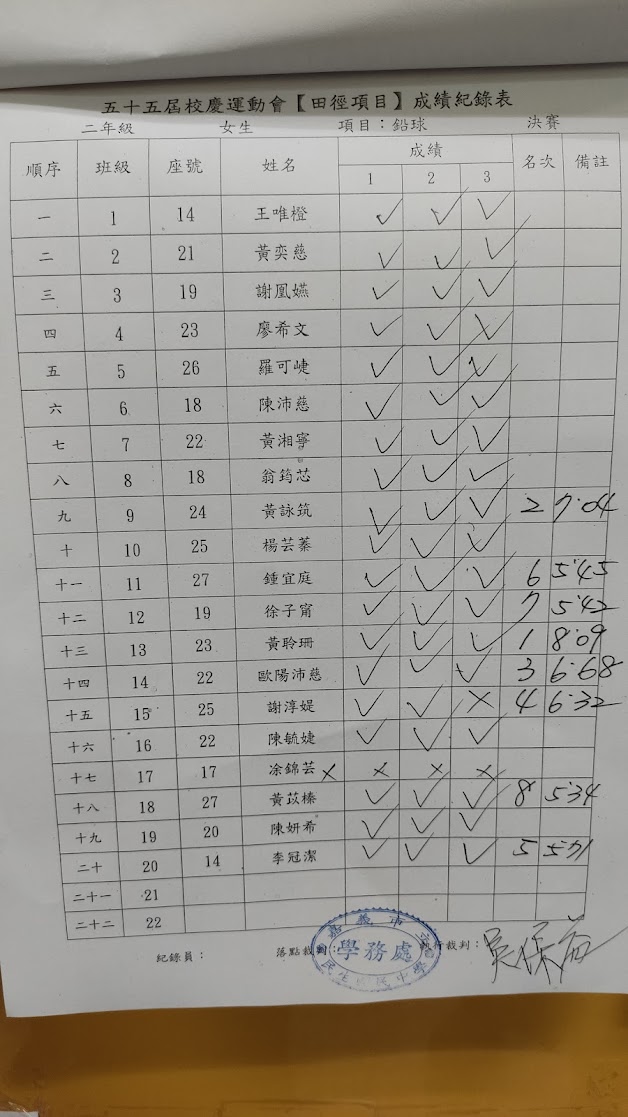 五十五屆校慶運動會【田徑項目】成績紀錄表
二年級 女生 項目：鉛球 決賽
順序 班級 座號 姓名 成績 名次 備註
1 2 3
一 1 14 王唯橙 ✓ ✓ ✓
二 2 21 黃奕慈 ✓ ✓ ✓
三 3 19 謝凰嬿 ✓ ✓ ✓
四 4 23 廖希文 ✓ ✓ ✓
五 5 26 羅可崨 ✓ ✓ ✓
六 6 18 陳沛慈 ✓ ✓ ✓
七 7 22 黃湘寧 ✓ ✓ ✓
八 8 18 翁筠芯 ✓ ✓ ✓
九 9 24 黃詠筑 ✓ ✓ ✓ 2 7.04
十 10 25 楊芸蓁 ✓ ✓ ✓
十一 11 27 鍾宜庭 ✓ ✓ ✓ 6 5.45
十二 12 19 徐子甯 ✓ ✓ ✓ 7 5.42
十三 13 23 黃聆珊 ✓ ✓ ✓ 1 8.09
十四 14 22 歐陽沛慈 ✓ ✓ ✓ 3 6.68
十五 15 25 謝淳媞 ✓ ✓ × 4 6.32
十六 16 22 陳毓婕 ✓ ✓ ✓
十七 17 17 凃錦芸 × × × ×
十八 18 27 黃苡榛 ✓ ✓ ✓ 8 5.34
十九 19 20 陳妍希 ✓ ✓ ✓
二十 20 14 李冠潔 ✓ ✓ ✓ 5
二十一 21
二十二 22
紀錄員： 落點裁判： 執行裁判：
嘉義市立
學務處
民生國民中學